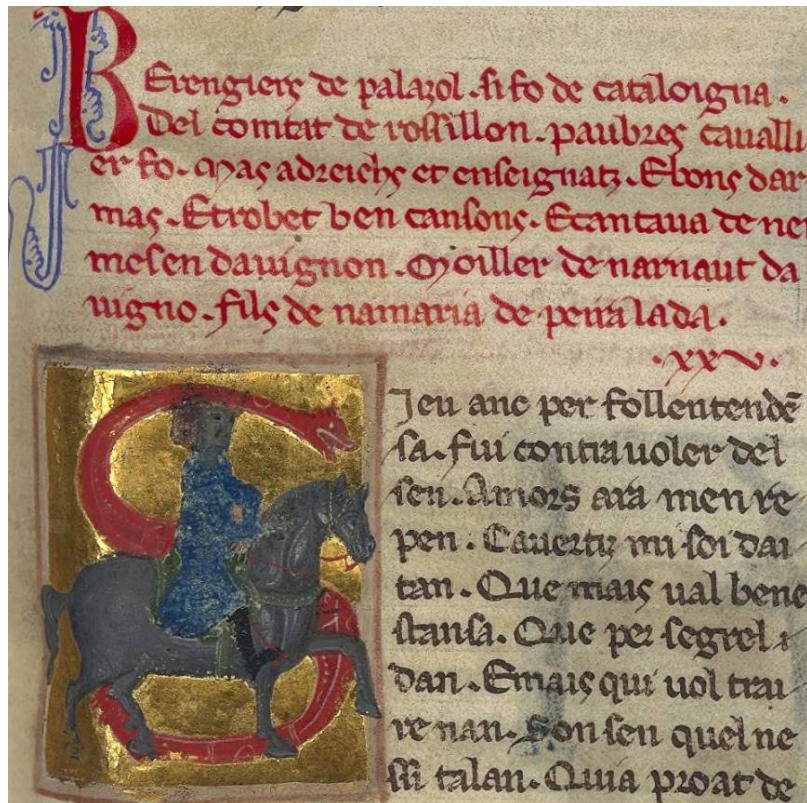 BErengiers de palazol. si fo de cataloigna.
Del comtat de rossillon. paubres caualli
er fo. Mas adreichs et enseignatz. E bons dar
mas. E trobet ben cansons. E cantaua de ner
mesen dauignon. Moiller de narnaut da
uigno. fils de namaria de peiralada.
.xxv.
S Ieu anc per follentendē
sa. fui contra uoler del
sen. Amors ara men re
pen. Cauertz mi soi dai
tan. Que mais ual bene
stansa. Que per segrel
dan. E mais qui uol trai
re nan. Son sen quel ne
sci talan. Quia proat de